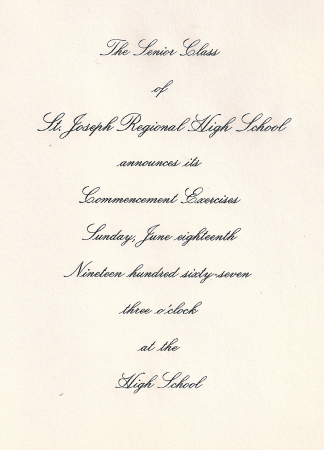 The Senior Class
of
St. Joseph Regional High School
announces its
Commencement Exercises
Sunday, June eighteenth
Nineteen hundred sixty-seven
three o'clock
at the
High School